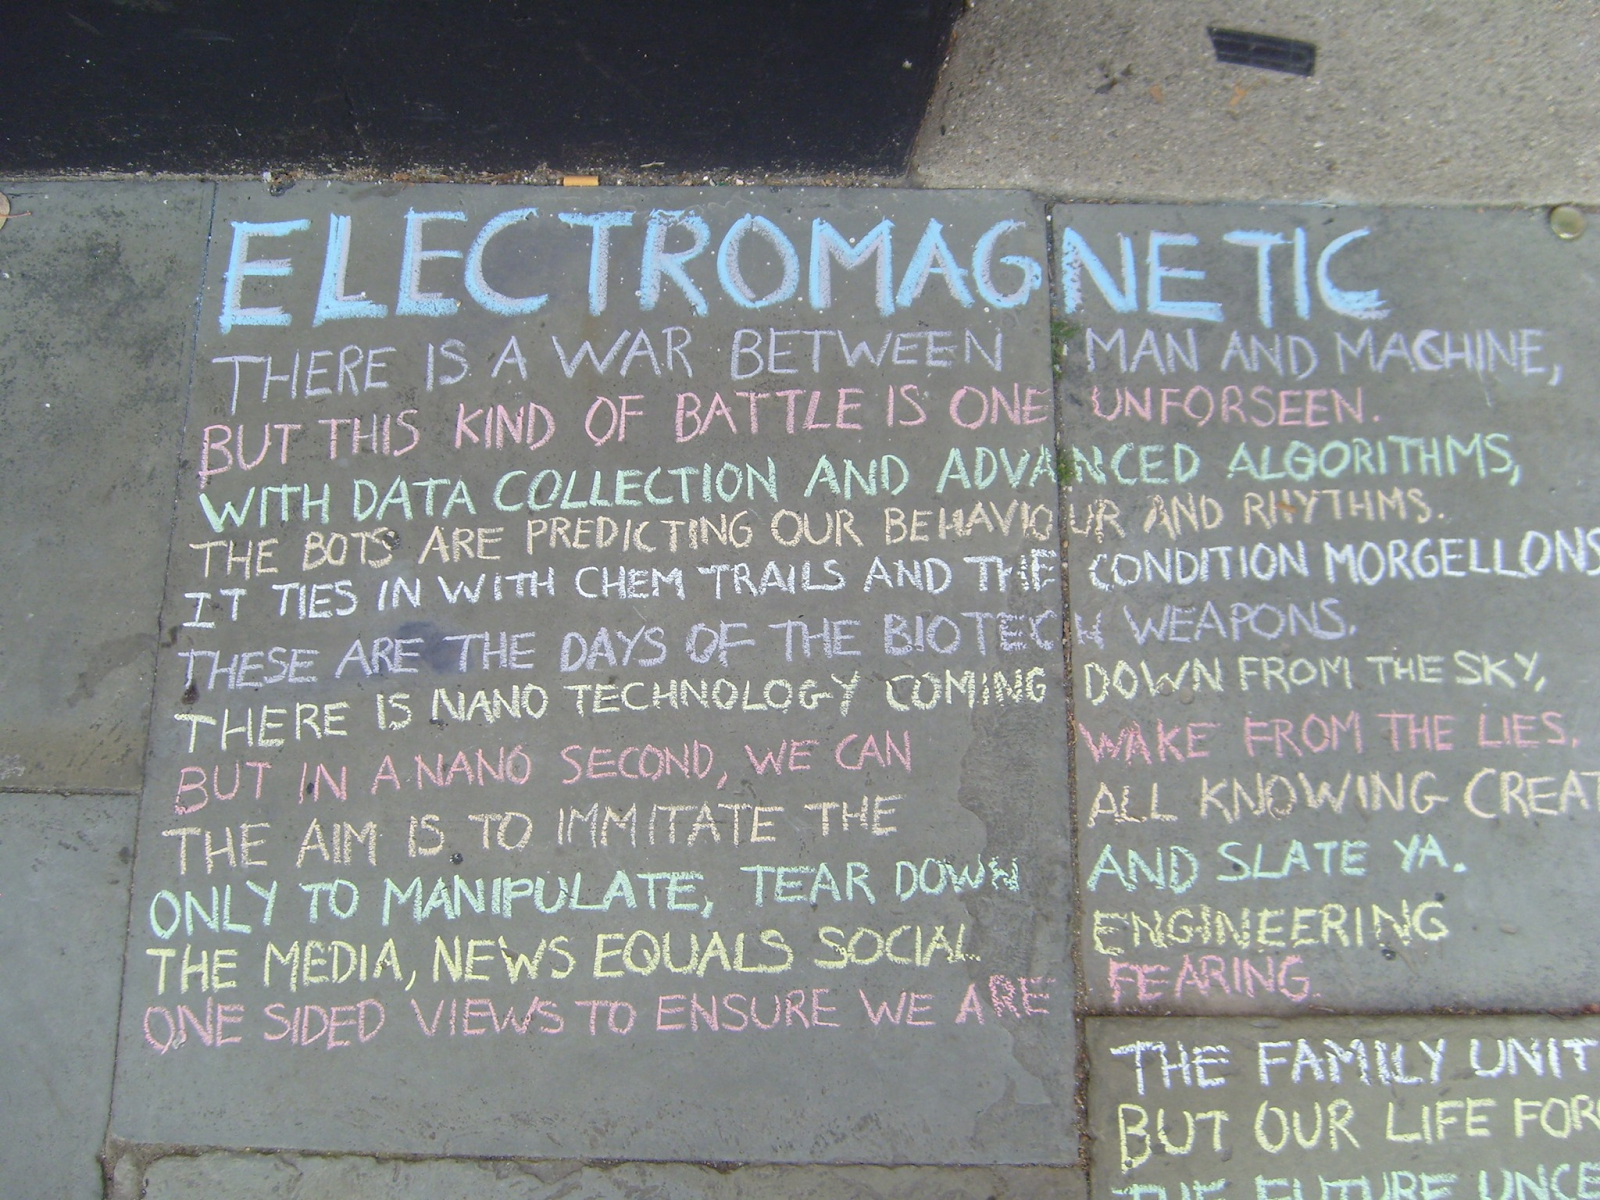 ELECTROMAGNETIC
THERE IS A WAR BETWEEN MAN AND MACHINE,
BUT THIS KIND OF BATTLE IS ONE UNFORSEEN.
WITH DATA COLLECTION AND ADVANCED ALGORITHMS,
THE BOTS ARE PREDICTING OUR BEHAVIOUR AND RHYTHMS.
IT TIES IN WITH CHEM TRAILS AND THE CONDITION MORGELLONS
THESE ARE THE DAYS OF THE BIOTECH WEAPONS.
THERE IS NANO TECHNOLOGY COMING DOWN FROM THE SKY,
BUT IN A NANO SECOND, WE CAN WAKE FROM THE LIES.
THE AIM IS TO IMMITATE THE ALL KNOWING CREAT
ONLY TO MANIPULATE, TEAR DOWN AND SLATE YA.
THE MEDIA, NEWS EQUALS SOCIAL ENGINEERING
ONE SIDED VIEWS TO ENSURE WE ARE FEARING.
THE FAMILY UNIT
BUT OUR LIFE FOR
THE FUTURE UNCE